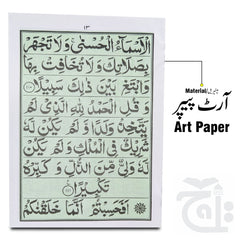 ١٣
الْاَسْمَآءُ الْحُسْنٰى ۚ وَلَا تَجْهَرْ
بِصَلَاتِكَ وَلَا تُخَافِتْ بِهَا
وَابْتَغِ بَيْنَ ذٰلِكَ سَبِيْلًا
وَ قُلِ الْحَمْدُ لِلّٰهِ الَّذِىْ لَمْ
يَتَّخِذْ وَلَدًا وَّ لَمْ يَكُنْ لَّهٗ
شَرِيْكٌ فِى الْمُلْكِ وَ لَمْ يَكُنْ
لَّهٗ وَلِىٌّ مِّنَ الذُّلِّ وَ كَبِّرْهُ
تَكْبِيْرًا
اَفَحَسِبْتُمْ اَنَّمَا خَلَقْنٰكُمْ
Material
آرٹ پیپر
Art Paper